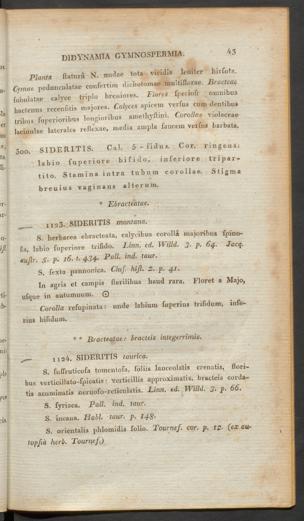 DIDYNAMIA GYMNOSPERMIA. 43
Planta staturâ N. nudae tota viridis leuiter hirsuta.
Cymae pedunculatae confertim dichotomae multiflorae. Bracteae
subulatae calyce triplo breuiores. Flores speciosi omnibus
hactenus recensitis majores. Calyces apicem versus cum dentibus
tribus superioribus longioribus amethystini. Corollae violaceae
laciniulae laterales reflexae, media ampla faucem versus barbata.
300. SIDERITIS. Cal. 5-fidus. Cor. ringens:
labio superiore bifido, inferiore tripar-
tito. Stamina intra tubum corollae. Stigma
breuius vaginans alterum.
* Ebracteatae.
1123. SIDERITIS montana.
S. herbacea ebracteata, calycibus corollâ majoribus spino-
sis, labio superiore trifido. Linn. ed. Willd. 3. p. 64. Jacq.
austr. 5. p. 16. t. 434. Pall. ind. taur.
S. sexta pannonica. Clus. hist. 2. p. 41.
In agris et campis sterilibus haud rara. Floret a Majo,
usque in autumnum. ☉
Corolla resupinata: unde labium superius trifidum, infe-
rius bifidum.
** Bracteatae: bracteis integerrimis.
1124. SIDERITIS taurica.
S. suffruticosa tomentosa, foliis lanceolatis crenatis, flori-
bus verticillato-spicatis: verticillis approximatis, bracteis corda-
tis acuminatis neruoso-reticulatis. Linn. ed. Willd. 3. p. 66.
S. syriaca. Pall. ind. taur.
S. incana. Habl. taur. p. 148.
S. orientalis phlomidis folio. Tournef. cor. p. 12. (ex au-
topsia herb. Tournef.)